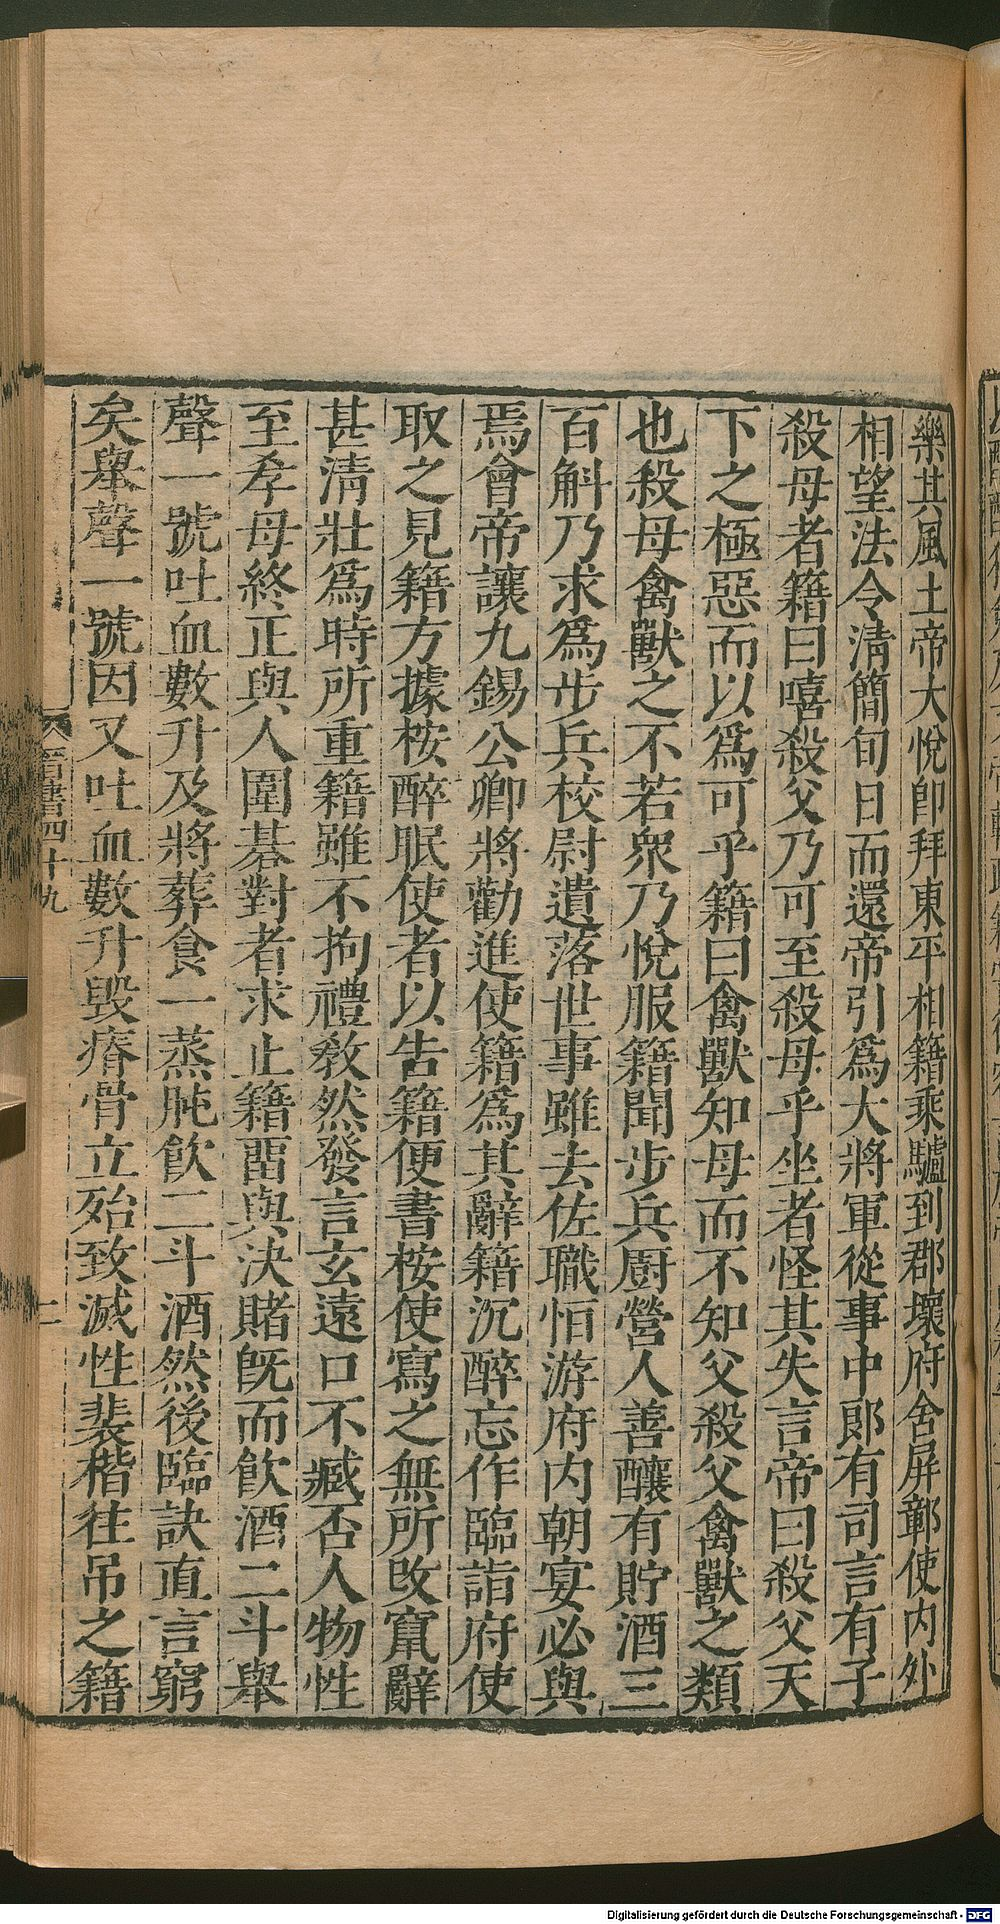 樂其風土帝大悅卽拜東平相籍乘驢到郡壞府舍屏鄣使内外
相望法令淸簡旬日而還帝引爲大將軍從事中郎有司言有子
殺母者籍曰嘻殺父乃可至殺母乎坐者怪其失言帝曰殺父天
下之極惡而以爲可乎籍曰禽獸知母而不知父殺父禽獸之類
也殺母禽獸之不若衆乃悅服籍聞步兵厨營人善釀有貯酒三
百斛乃求爲步兵校尉遺落世事雖去佐職恒游府内朝宴必與
焉會帝讓九錫公卿將勸進使籍爲其辭籍沉醉忘作臨詣府使
取之見籍方據桉醉眠使者以告籍便書桉使寫之無所改竄辭
甚淸壯爲時所重籍雖不拘禮敎然發言玄遠口不臧否人物性
至孝母終正與人圍碁對者求止籍畱與決賭旣而飮酒二斗舉
聲一號吐血數升及將葬食一蒸肫飮二斗酒然後臨訣直言窮
矣舉聲一號因又吐血數升毀瘠骨立殆致滅性裴楷往吊之籍
晉書四十九
二
Digitalisierung gefördert durch die Deutsche Forschungsgemeinschaft - DFG